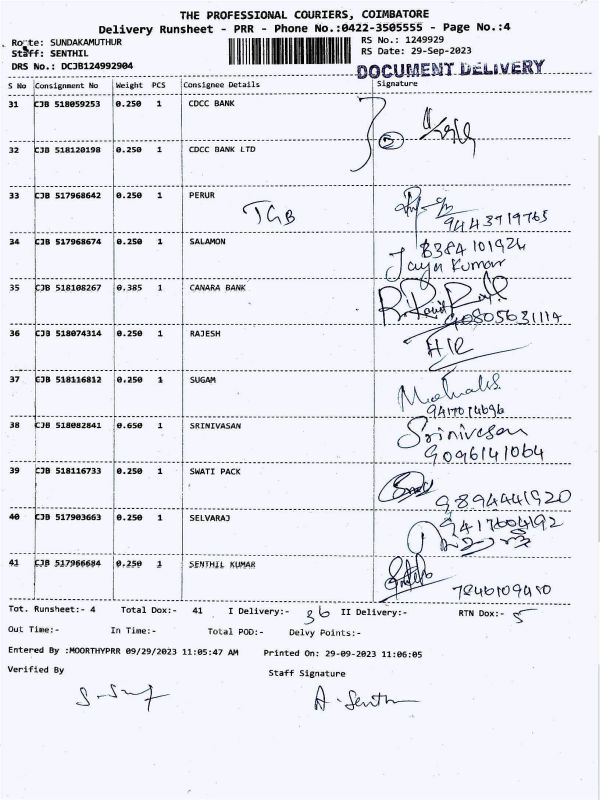 THE PROFESSIONAL COURIERS, COIMBATORE
Delivery Runsheet - PRR - Phone No.:0422-3505555 - Page No.:4
Route: SUNDAKAMUTHUR
RS No.: 1249929
Staff: SENTHIL
RS Date: 29-Sep-2023
DRS No.: DCJB124992904
DOCUMENT DELIVERY
S No Consignment No Weight PCS Consignee Details Signature
31 CJB 518059253 0.250 1 CDCC BANK
2
32 CJB 518120198 0.250 1 CDCC BANK LTD
33 CJB 517968642 0.250 1 PERUR
TGB
9443719765
34 CJB 517968674 0.250 1 SALAMON 8384101924
Jaya Kumar
35 CJB 518108267 0.385 1 CANARA BANK
36 CJB 518074314 0.250 1 RAJESH
37 CJB 518116812 0.250 1 SUGAM
38 CJB 518082841 0.650 1 SRINIVASAN Srinivasan
9096141064
39 CJB 518116733 0.250 1 SWATI PACK
9894441920
40 CJB 517903663 0.250 1 SELVARAJ 9417604192
41 CJB 517966684 0.250 1 SENTHIL KUMAR
Tot. Runsheet:- 4 Total Dox:- 41 I Delivery:- 36 II Delivery:- RTN Dox:- 5
Out Time:- In Time:- Total POD:- Delvy Points:-
Entered By :MOORTHYPRR 09/29/2023 11:05:47 AM Printed On: 29-09-2023 11:06:05
Verified By Staff Signature
A. Senth